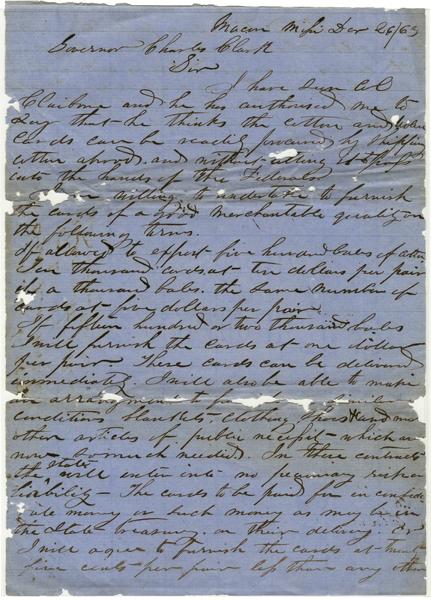 Macon Missi Dec 26/63
Governor Charles Clark
Sir
I have seen Col
Claiborne and he has authorised me to
say that he thinks the cotton and
cards can be readily procured by shipping
cotton abroad and without
into the hands of the Federals
willing to undertake to furnish
the cards of a good merchantable quality on
the following terms.
If allowed to export five hundred bales of cotton
Ten thousand cards at ten dollars per pair
if a thousand bales. the same number of
cards at five dollars per pair
If fifteen hundred or two thousand bales
I will furnish the cards at one dollar
per pair These cards can be delivered
immediately. I will also be able to make
an arrangement
conditions Blankets, Clothing, Shoes and
other articles of public which are
now so much needed. In these contracts
the state will enter into no pecuniary
liability - The cards to be paid for in
money or such money as may be in
the State treasury on their delivery.
I will agree to furnish the cards at
five cents per pair less than any other